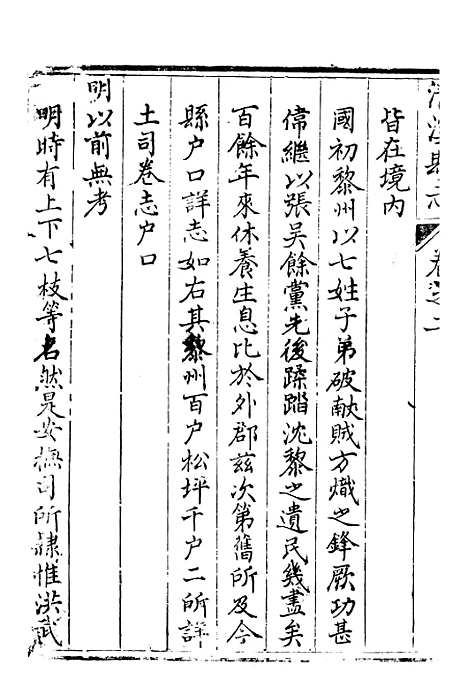 清溪縣志
卷之二
皆在境内
國初黎州以七姓子弟破献賊方熾之鋒厥功甚
偉繼以張吴餘黨先後蹂踏沈黎之遺民幾盡矣
百餘年來休養生息比於外郡兹次第舊所及今
縣户口詳志如右其黎州百户松坪千户二所詳
土司卷志户口
明以前無考
明時有上下七枝等名然是安撫司所隷惟洪武